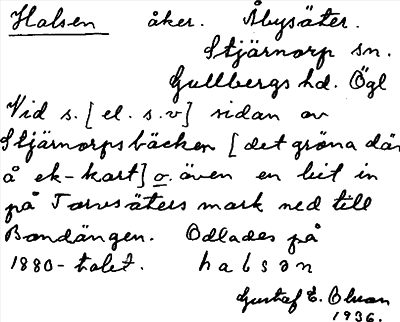 Halsen åker. Åbysäter.
Stjärnorp sn.
Gullbergs hd. Ögl
Vid s. [el. s.v] sidan av
Stjärnorpsbäcken [det gröna där
å ek-kart] o. även en bit in
på Torvesäters mark ned till
Bondängen. Odlades på
1880-talet. halsən
Gustaf E. Olsson
1936.